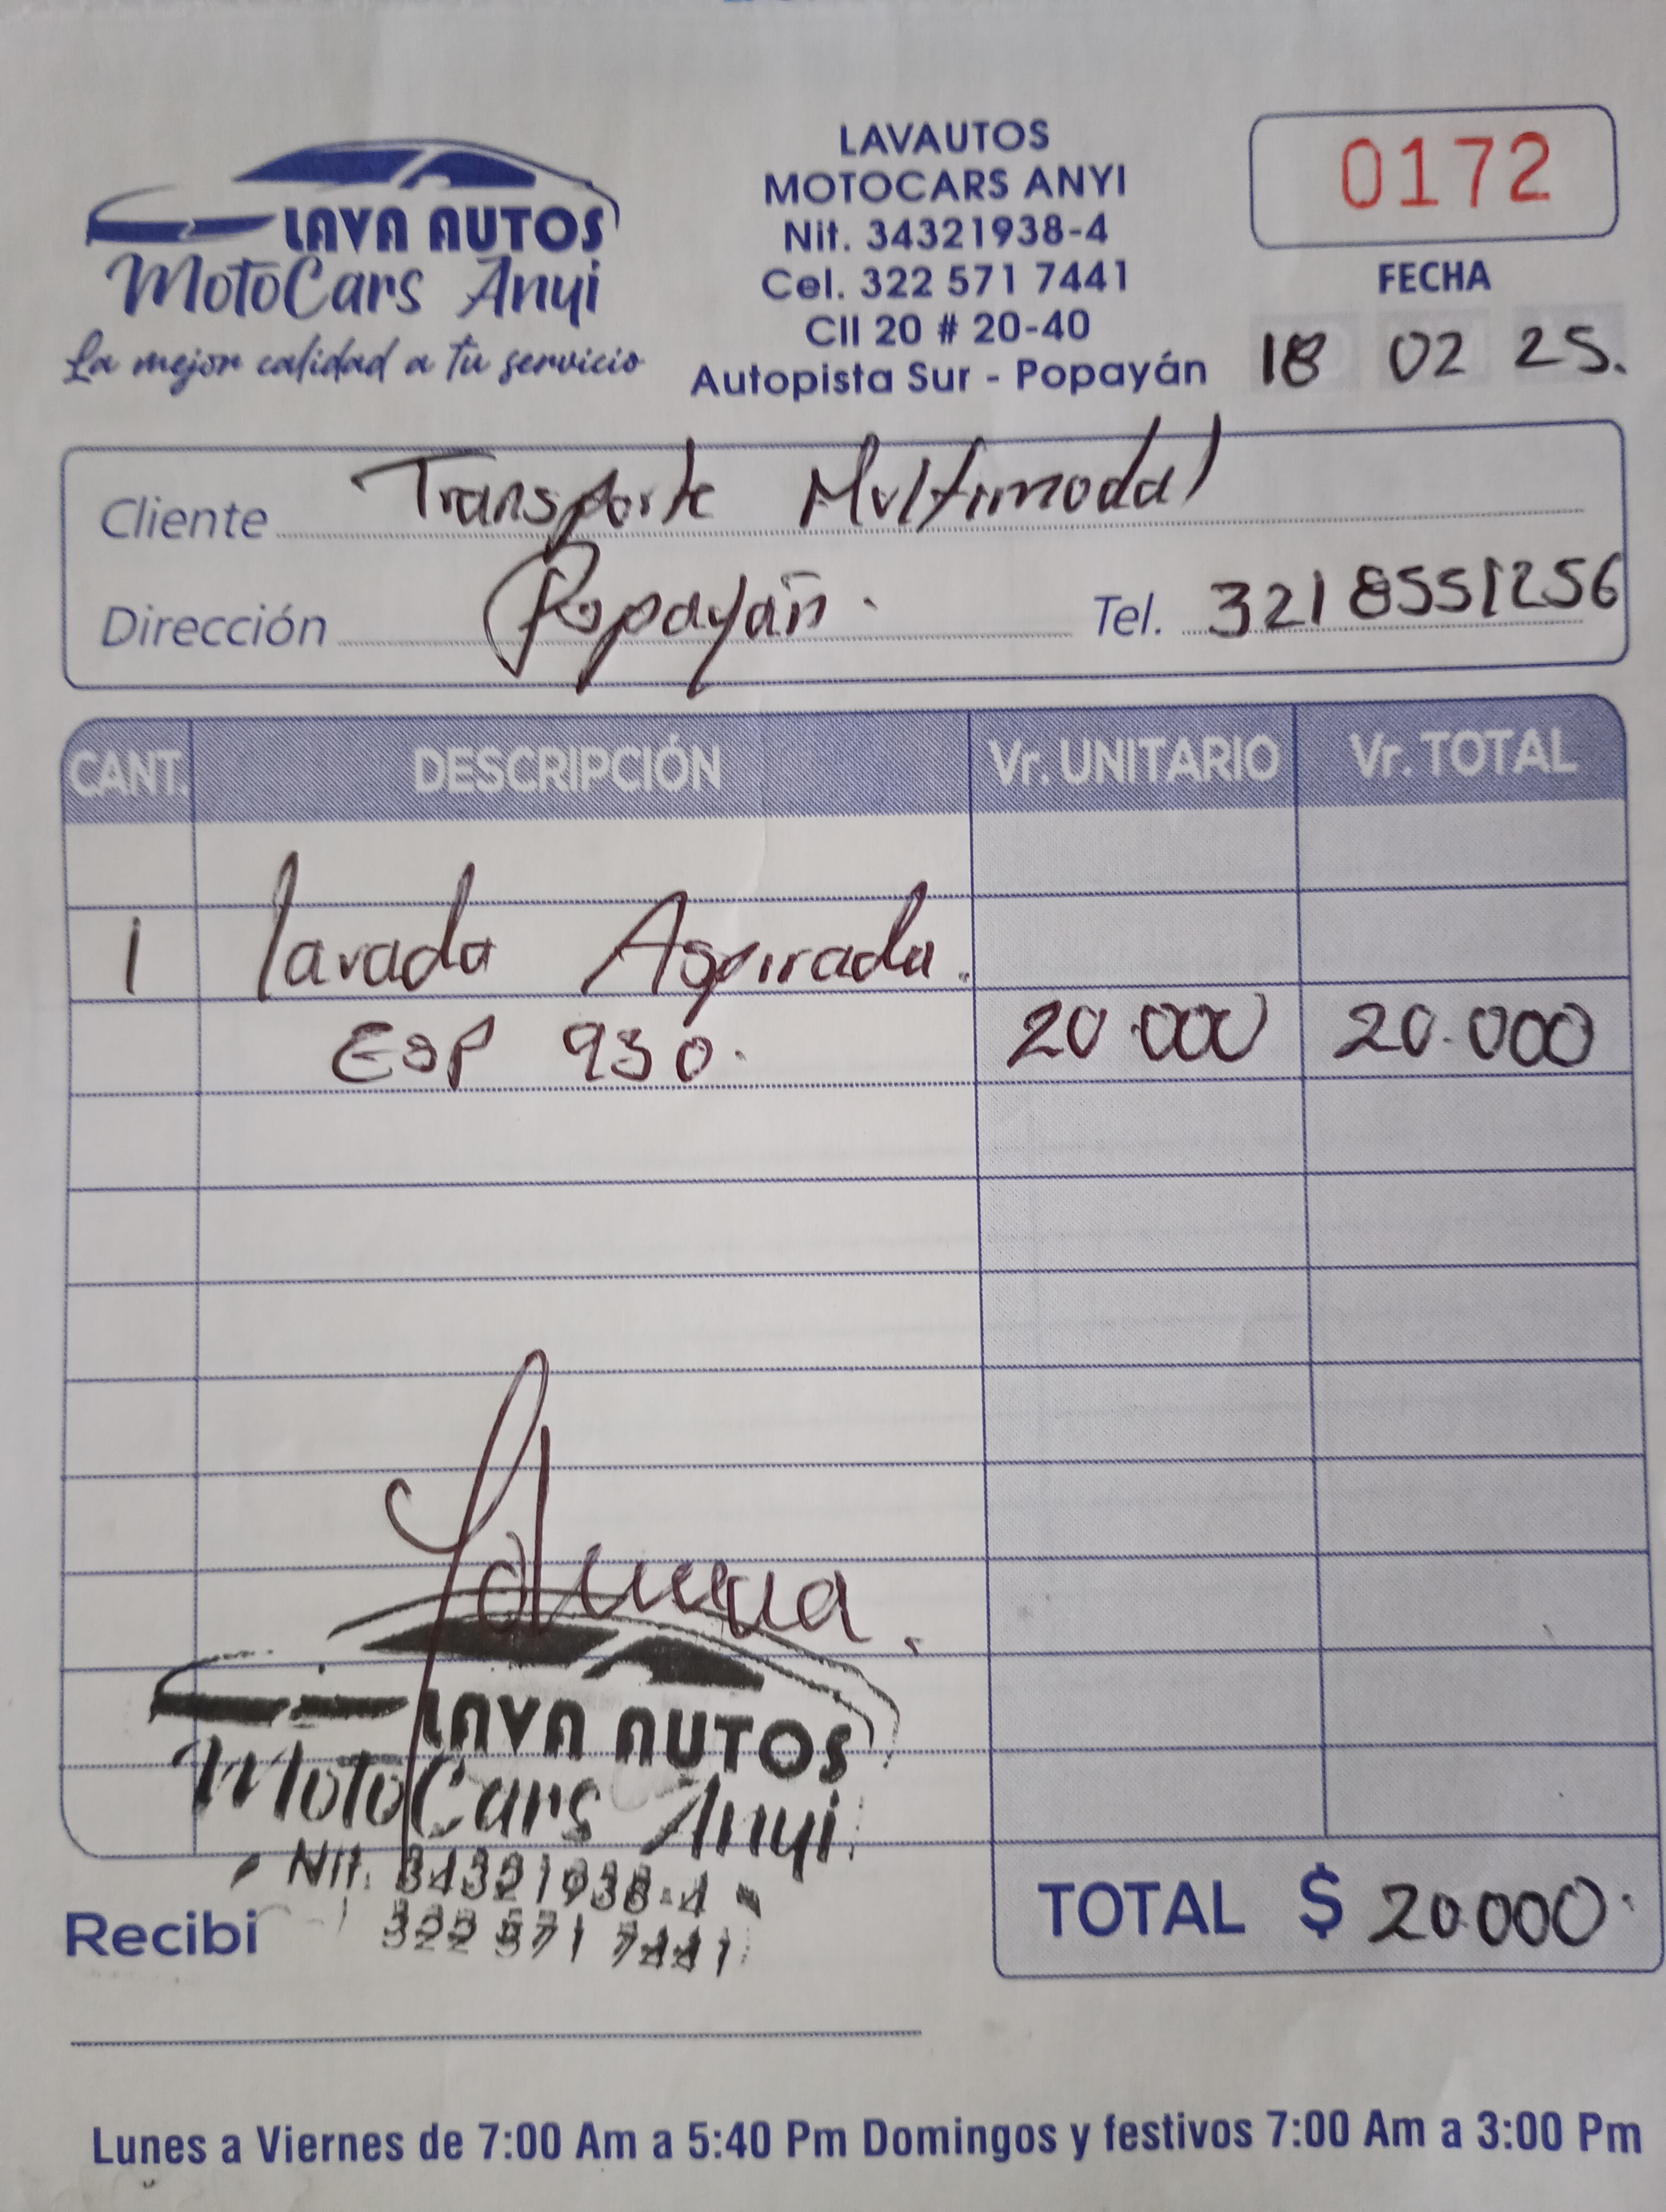 LAVA AUTOS
MotoCars Anyi
La mejor calidad a tu servicio
LAVAUTOS
MOTOCARS ANYI
Nit. 34321938-4
Cel. 322 571 7441
Cll 20 # 20-40
Autopista Sur - Popayán
0172
FECHA
18 02 25.
Cliente Transporte Multimodal
Dirección Popayán. Tel. 3218551256
CANT. DESCRIPCIÓN Vr. UNITARIO Vr. TOTAL
1 lavada Aspirada.
ESP 930. 20.000 20.000
LAVA AUTOS
MotoCars Anyi
Nit. 34321938-4
322 571 7441
Recibi
TOTAL $ 20.000
Lunes a Viernes de 7:00 Am a 5:40 Pm Domingos y festivos 7:00 Am a 3:00 Pm